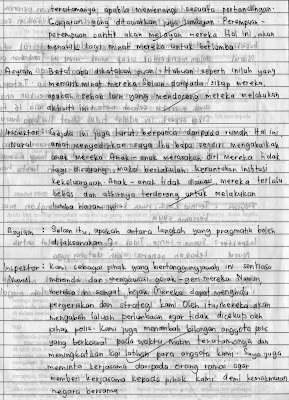 terutamanya, apabila memenangi sesuatu pertandingan.
Ganjaran yang ditawarkan juga lumayan. Perempuan-
perempuan cantik akan melayan mereka. Hal ini akan
menarik lagi minat mereka untuk berlumba.
Betul apa dikatakan puan. Habuan seperti inilah yang
menarik minat mereka. Selain daripada sikap mereka,
apakah beban lain yang mendorong mereka melakukan
aktiviti ini
Inspektor : Gejala ini juga turut berpunca daripada rumah. Hal ini
Nurul amat menyedihkan saya. Ibu bapa sendiri mengabaikan
anak mereka. Anak-anak merasakan diri mereka tidak
lagi disayangi, maka berlakulah keruntuhan institusi
kekeluargaan. Anak-anak tidak dikawal, mereka terlalu
bebas dan akhirnya terdorong untuk melakukan
lumba haram ini.
: Selain itu, apakah antara langkah yang pragmatik boleh
dilaksanakan?
Inspektor : Kami sebagai pihak yang bertanggungjawab ini sentiasa
Nurul memonda dan mengawasi gerak-geri mereka. Namun,
mereka ini sangat bijak. Mereka dapat menghidu
pergerakan dan strategi kami. Oleh itu, mereka akan
mengubah laluan perlumbaan agar tidak dicekup oleh
pihak polis. Kami juga menambah bilangan anggota polis
yang berkawal pada waktu malam terutamanya dan
meningkatkan lagi latihan para anggota kami. Saya juga
meminta kerjasama daripada orang ramai agar
memberi kerjasama kepada pihak kami demi kemakmuran
negara bersama.